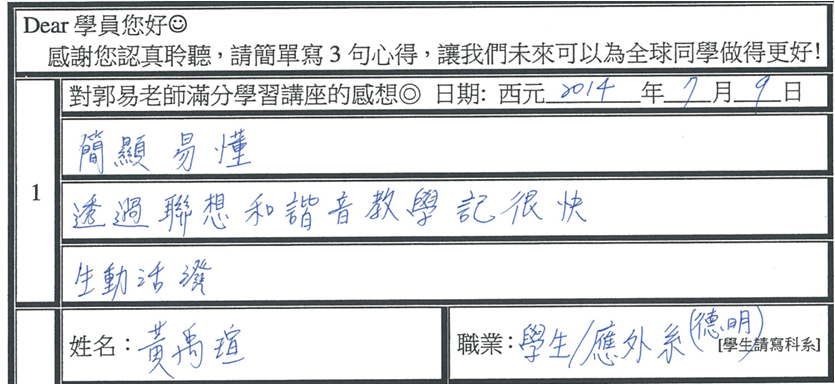 Dear 學員您好☺
感謝您認真聆聽，請簡單寫 3 句心得，讓我們未來可以為全球同學做得更好!
1
對郭易老師滿分學習講座的感想◎ 日期: 西元 2014 年 7 月 9 日
簡顯易懂
透過聯想和諧音教學記很快
生動活潑
姓名：黃禹瑄
職業：學生/應外系(德明)
[學生請寫科系]